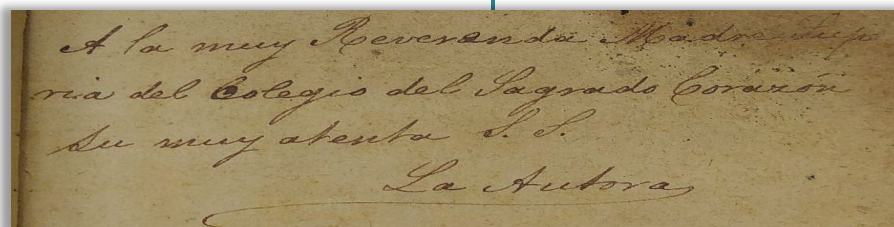 A la muy Reverenda Madre Supe
ria del Colegio del Sagrado Corazón
su muy atenta S. S.
La Autora